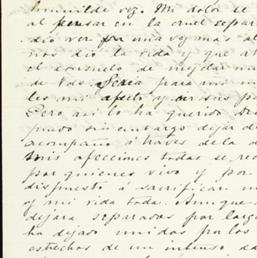 humilde vez. Mi dolor se
al pensar en la cruel separa
dió ver por una vez mas al
nos dió la vida y que al
el consuelo de
de Vds. Seria para mi un
les mi afecto y
Pero asi lo ha querido Dios
puedo sin embargo dejar de
acompaño á traves de la d
Mis afecciones todas se rec
por quienes vivo y por
dispuesto á sacrificar m
y mi vida toda. Aunque
dejara separados por largo
ha dejado unidos por los
estrechos de un intenso ca